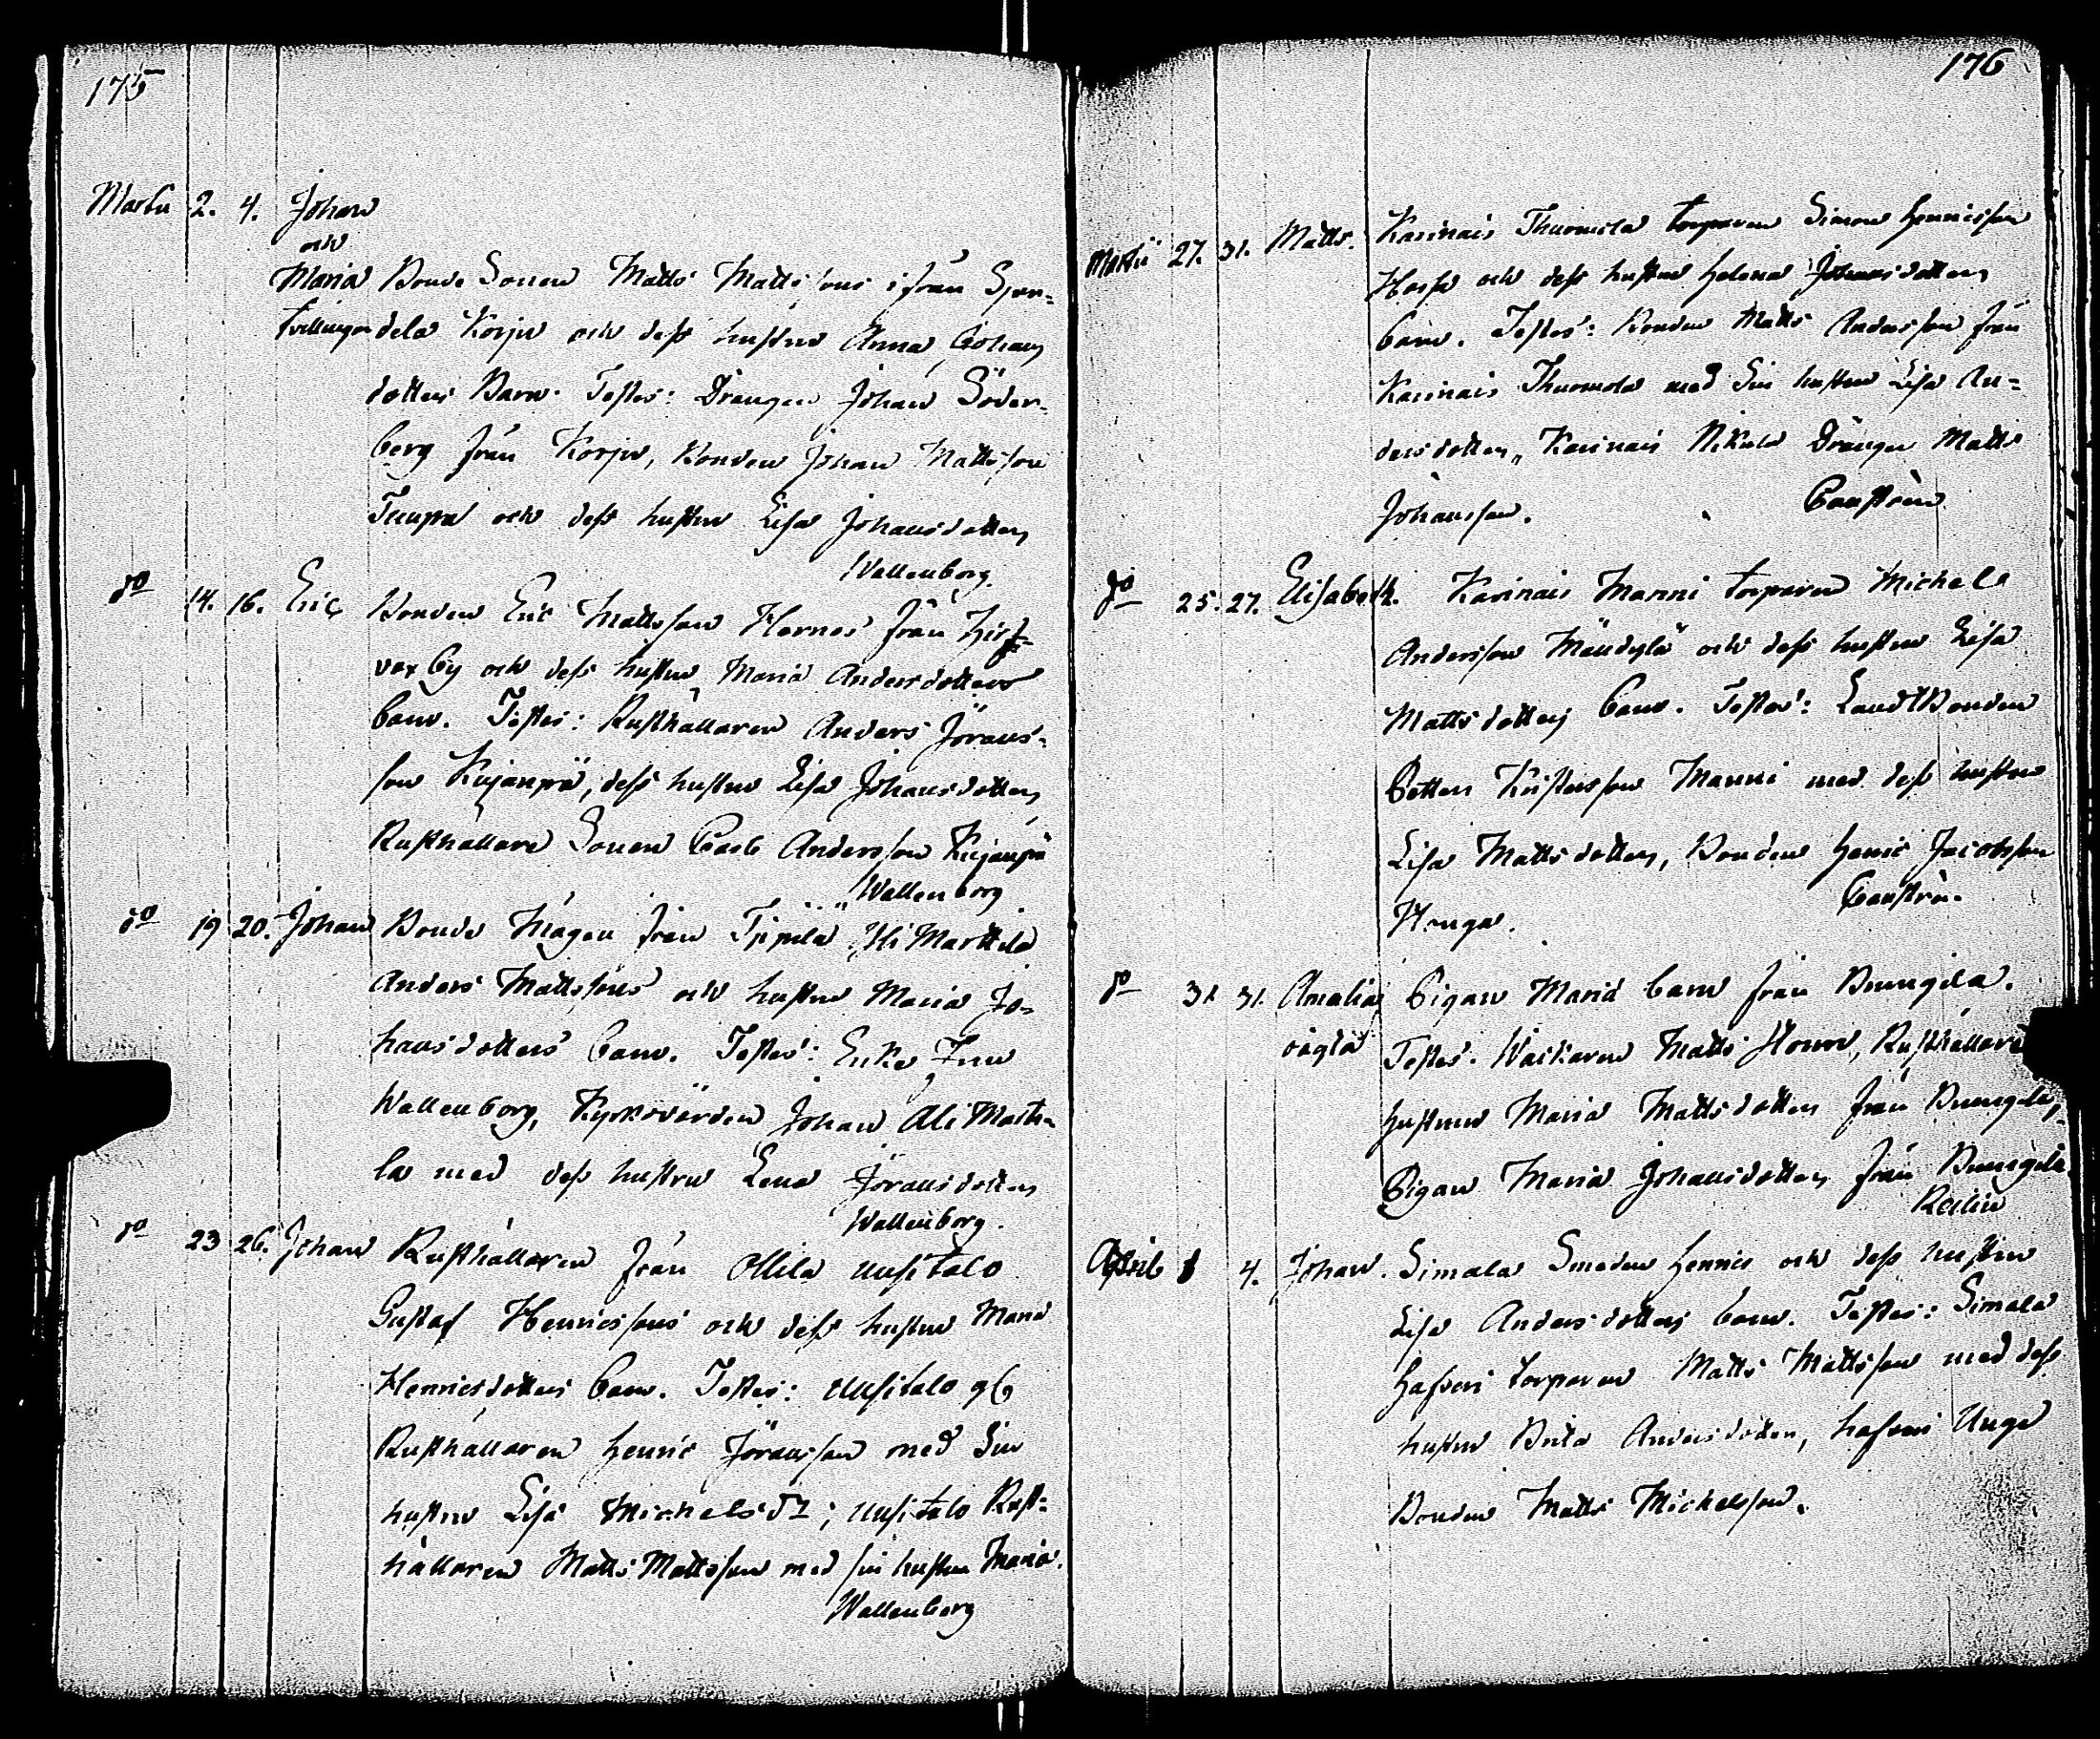 175
Martii 2. 4. Johan
och
Maria Bonde Sonen Matts Mattssons ifrån Spar-
tvillingar dela Korpi och dess hustru Anna Johans
dotters Barn. Testes: Drängen Johan Söder-
berg från Korpi, Bonden Johan Mattsson
och dess hustru Lisa Johansdotter
Wallenborg.
do 14. 16. Eric Bonden Eric Mattsson Hornos från
by och dess hustru Maria Andersdotters
barn. Testes: Rusthållaren Anders Jörans-
son Kujanpä, dess hustru Lisa Johansdotter,
Rusthållare Sonen Carl Andersson Kujanpä
Wallenborg
do 19 20. Johan Bonde Mågen från Marttila
Anders Mattssons och hustru Maria Jo-
hansdotters barn. Testes: Enke Fru
Wallenborg, Kyrkovärden Johan Ali Martti-
la med dess hustru Lena Jöransdotter
Wallenborg.
do 23 26. Johan Rusthållaren från Ollila Uusitalo
Gustaf Henricssons och dess hustru Maria
Henricsdotters barn. Testes: Uusitalo
Rusthållaren Henric Jöransson med Sin
hustru Lisa Michelsdr; Uusitalo Rust-
hållaren Matts Mattsson med sin hustru Maria.
Wallenborg
176
Martii 27. 31. Matts. Karinais Thuomola torparen Simon Henricsson
och dess hustru Helena Johansdotters
barn. Testes: Bonden Matts Andersson från
Karinais Thuomola med Sin hustru Lisa An-
dersdotter, Karinais Nikula Drängen Matts
Johansson.
do 25. 27. Elisabeth. Karinais Manni torparen Michel
Andersson Mändylä och dess hustru Lisa
Mattsdotters barn. Testes: Landtbonden
Petter Kristersson Manni med dess hustru
Lisa Mattsdotter, Bonden Henric Jacobsson
do 31. 31. Amalia Pigan Maria barn från
oägta Testes: Matts Rusthållare
hustrun Maria Mattsdotter från
Pigan Maria Johansdotter från
Relin
April 1 4. Johan. Simala Smeden Henric och dess hustru
Lisa Andersdotters barn. Testes: Simala
Hafveri torparen Matts Mattsson med dess
hustru Brita Andersdotter, Unge
Bonden Matts Michelsson.